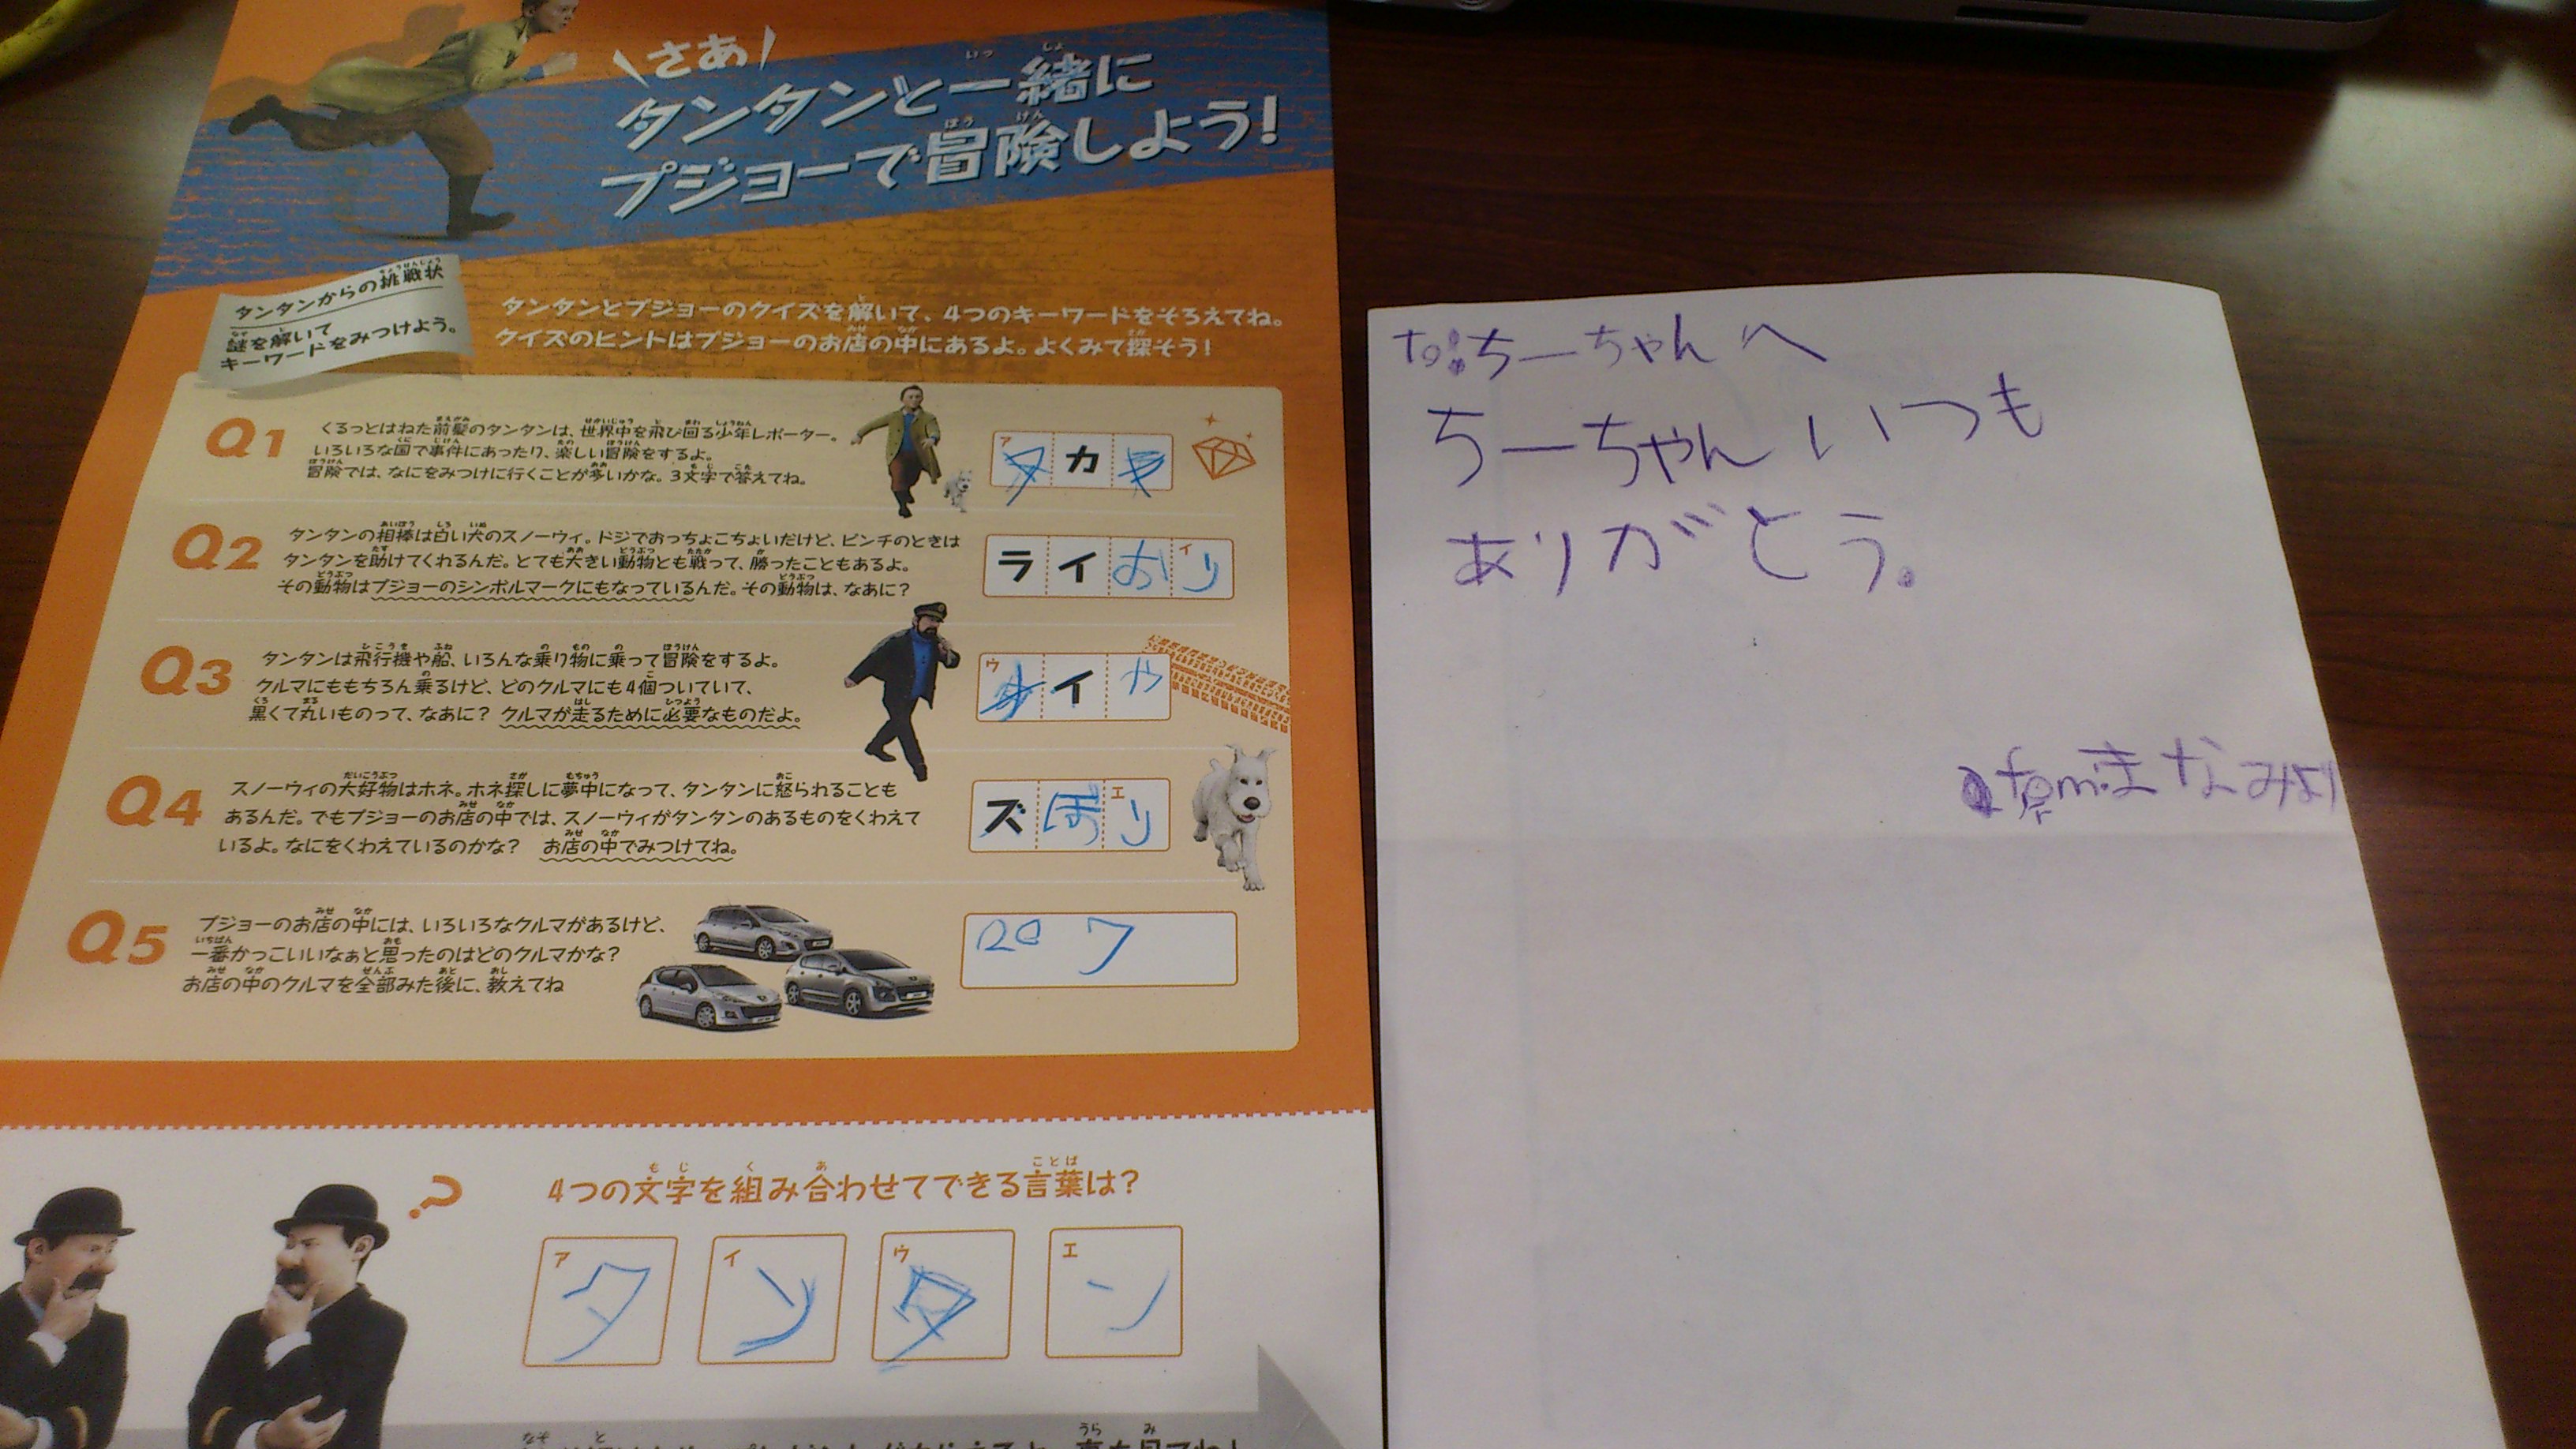 さあ
タンタンと一緒に
プジョーで冒険しよう!
タンタンからの挑戦状
謎を解いて
キーワードをみつけよう。
タンタンとプジョーのクイズを解いて、4つのキーワードをそろえてね。
クイズのヒントはプジョーのお店の中にあるよ。よくみて探そう!
Q1
くるっとはねた前髪のタンタンは、世界中を飛び回る少年レポーター。
いろいろな国で事件にあったり、楽しい冒険をするよ。
冒険では、なにをみつけに行くことが多いかな。3文字で答えてね。
ア
タカ
Q2
タンタンの相棒は白い犬のスノーウィ。ドジでおっちょこちょいだけど、ピンチのときは
タンタンを助けてくれるんだ。とても大きい動物とも戦って、勝ったこともあるよ。
その動物はプジョーのシンボルマークにもなっているんだ。その動物は、なあに?
イ
ライおり
Q3
タンタンは飛行機や船、いろんな乗り物に乗って冒険をするよ。
クルマにももちろん乗るけど、どのクルマにも4個ついていて、
黒くて丸いものって、なあに? クルマが走るために必要なものだよ。
ウ
イや
Q4
スノーウィの大好物はホネ。ホネ探しに夢中になって、タンタンに怒られることも
あるんだ。でもプジョーのお店の中では、スノーウィがタンタンのあるものをくわえて
いるよ。なにをくわえているのかな? お店の中でみつけてね。
エ
ズぼり
Q5
プジョーのお店の中には、いろいろなクルマがあるけど、
一番かっこいいなぁと思ったのはどのクルマかな?
お店の中のクルマを全部みた後に、教えてね
207
4つの文字を組み合わせてできる言葉は?
ア イ ウ エ
タ ン タ ン
ちーちゃんへ
ちーちゃんいつも
ありがとう。
from まなみより